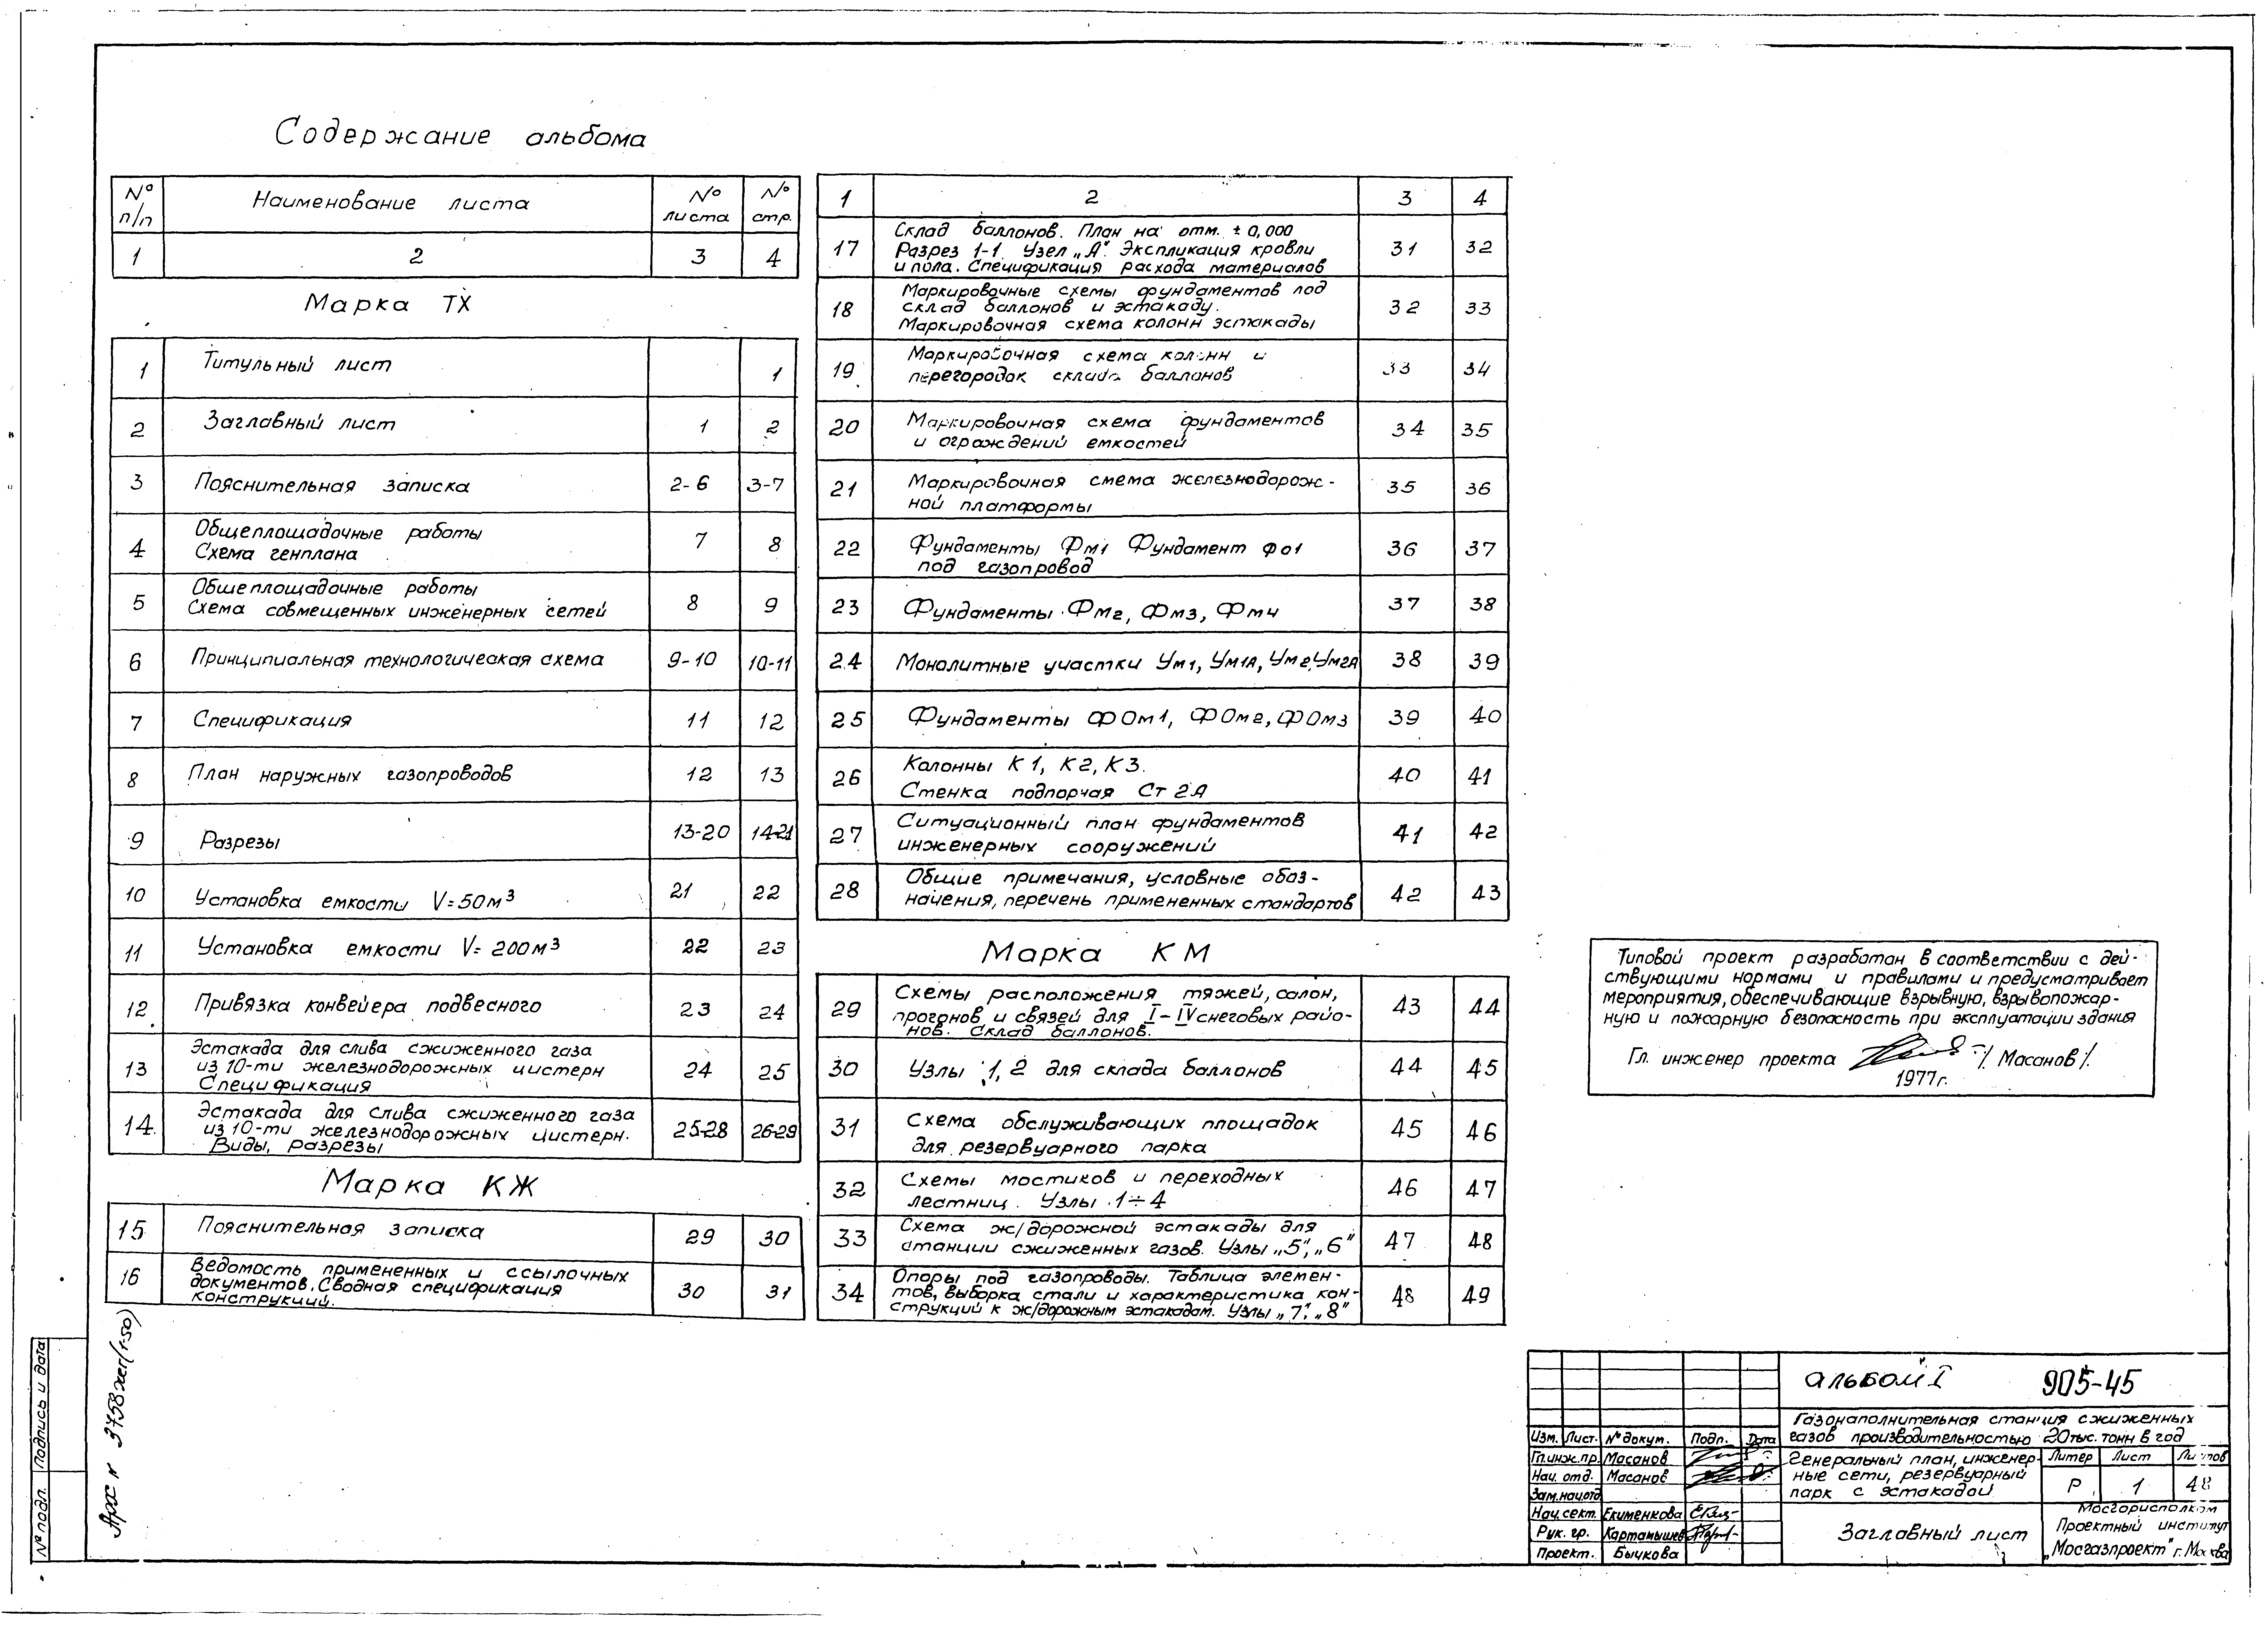 Содержание альбома
№ п/п Наименование листа № листа № стр.
1 2 3 4
Марка ТХ
1 Титульный лист 1
2 Заглавный лист 1 2
3 Пояснительная записка 2-6 3-7
4 Общеплощадочные работы
Схема генплана 7 8
5 Общеплощадочные работы
Схема совмещенных инженерных сетей 8 9
6 Принципиальная технологическая схема 9-10 10-11
7 Спецификация 11 12
8 План наружных газопроводов 12 13
9 Разрезы 13-20 14-21
10 Установка емкости V=50м³ 21 22
11 Установка емкости V=200м³ 22 23
12 Привязка конвейера подвесного 23 24
13 Эстакада для слива сжиженного газа
из 10-ти железнодорожных цистерн
Спецификация 24 25
14 Эстакада для слива сжиженного газа
из 10-ти железнодорожных цистерн.
Виды, разрезы 25-28 26-29
Марка КЖ
15 Пояснительная записка 29 30
16 Ведомость примененных и ссылочных
документов. Сводная спецификация
конструкций. 30 31
1 2 3 4
17 Склад баллонов. План на отм. ± 0,000
Разрез 1-1. Узел „А". Экспликация кровли
и пола. Спецификация расхода материалов 31 32
18 Маркировочные схемы фундаментов под
склад баллонов и эстакаду.
Маркировочная схема колонн эстакады 32 33
19 Маркировочная схема колонн и
перегородок склада баллонов 33 34
20 Маркировочная схема фундаментов
и ограждений емкостей 34 35
21 Маркировочная смема железнодорож-
ной платформы 35 36
22 Фундаменты Фм1 Фундамент Фо1
под газопровод 36 37
23 Фундаменты Фм2, Фм3, Фм4 37 38
24 Монолитные участки Ум1, Ум1А, Ум2, Ум2А 38 39
25 Фундаменты ФОм1, ФОм2, ФОм3 39 40
26 Колонны К1, К2, К3.
Стенка подпорчая Ст 2А 40 41
27 Ситуационный план фундаментов
инженерных сооружений 41 42
28 Общие примечания, условные обоз-
начения, перечень примененных стандартов 42 43
Марка КМ
29 Схемы расположения тяжей,
прогонов и связей для I-IV снеговых райо-
нов. Склад баллонов. 43 44
30 Узлы 1, 2 для склада баллонов 44 45
31 Схема обслуживающих площадок
для резервуарного парка 45 46
32 Схемы мостиков и переходных
лестниц. Узлы 1÷4 46 47
33 Схема ж/дорожной эстакады для
станции сжиженных газов. Узлы „5", „6" 47 48
34 Опоры под газопроводы. Таблица элемен-
тов, выборка стали и характеристика кон-
струкций к ж/дорожным эстакадам. Узлы „7", „8" 48 49
Типовой проект разработан в соответствии с дей-
ствующими нормами и правилами и предусматривает
мероприятия, обеспечивающие взрывную, взрывопожар-
ную и пожарную безопасность при эксплуатации здания
Гл. инженер проекта /Масанов/.
1977г.
альбом I 905-45
Газонаполнительная станция сжиженных
газов производительностью 20тыс. тонн в год
Изм. Лист. № докум. Подп. Дата
Гл.инж.пр. Масанов
Нач. отд. Масанов
Зам.нач.отд
Нач. сект. Екименкова
Рук. гр. Картамышев
Проект. Бычкова
Генеральный план, инженер-
ные сети, резервуарный
парк с эстакадой
Литер Лист Листов
Р 1 48
Заглавный лист
Мосгорисполком
Проектный институт
„Мосгазпроект" г. Москва
№ подл. Подпись и дата
Арх № 3758